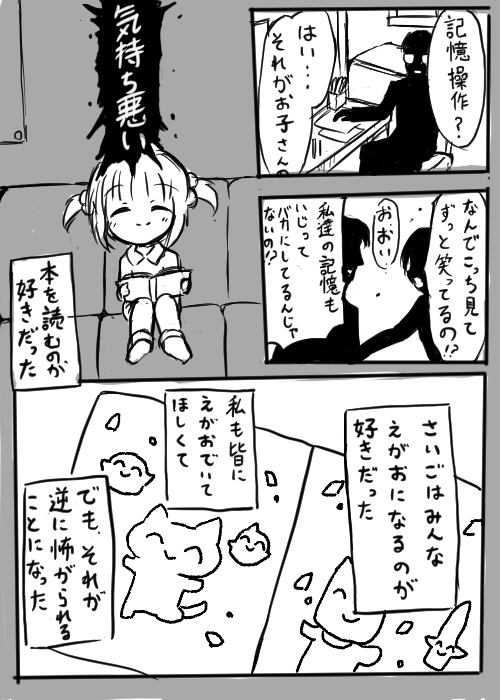 記憶操作?
はい…
それがお子さんの
なんでこっち見て
ずっと笑ってるの!?
おおい
私達の記憶も
いじって
バカにしてるんじゃ
ないの!?
気持ち悪い
本を読むのが
好きだった
さいごはみんな
えがおになるのが
好きだった
私も皆に
えがおでいて
ほしくて
でも、それが
逆に怖がられる
ことになった